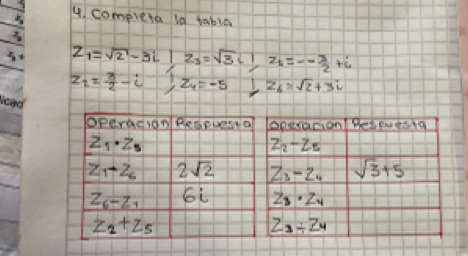 4. Completa la tabla
Z₁=√2-3i ; Z₃=√3i ; Z₅=--3/2+i
Z₂=3/2-i ; Z₄=-5 ; Z₆=√2+3i
Operacion Respuesta Operacion Respuesta
Z₁·Z₃ Z₂-Z₅
Z₁+Z₆ 2√2 Z₃-Z₄ √3+5
Z₆-Z₁ 6i Z₃·Z₄
Z₂+Z₅ Z₃÷Z₄